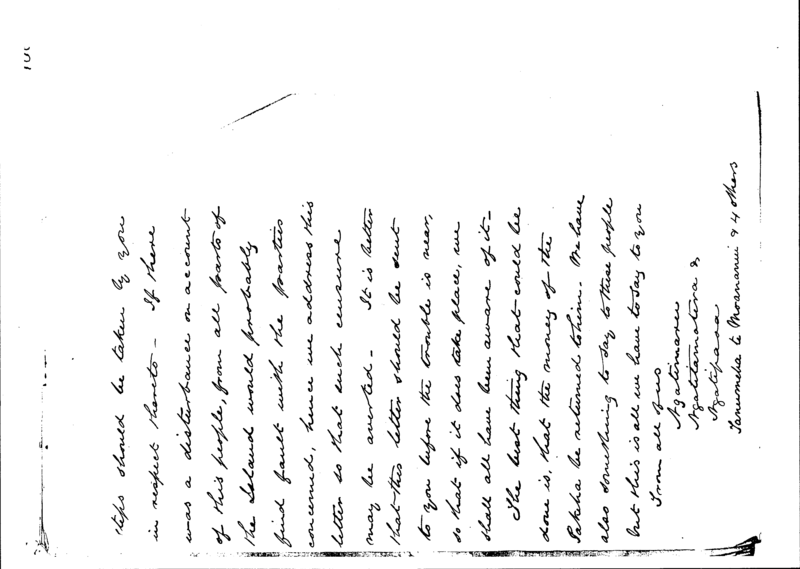 101
steps should be taken by you
in respect thereto - If there
was a disturbance on account
of this people, from all parts of
the Island would probably
find fault with the parties
concerned, hence we address this
letter so that such censure
may be averted - It is better
that this letter should be sent
to you before the trouble is near,
so that if it does take place, we
shall all have been aware of it -
The best thing that could be
done is, that the money of the
Pakeha be returned to him. We have
also something to say to those people
but this is all we have to say to you
From all of us
Ngatimaru
Ngatitamatera &
Ngatipaoa
Tanumeha te Moananui & 4 others